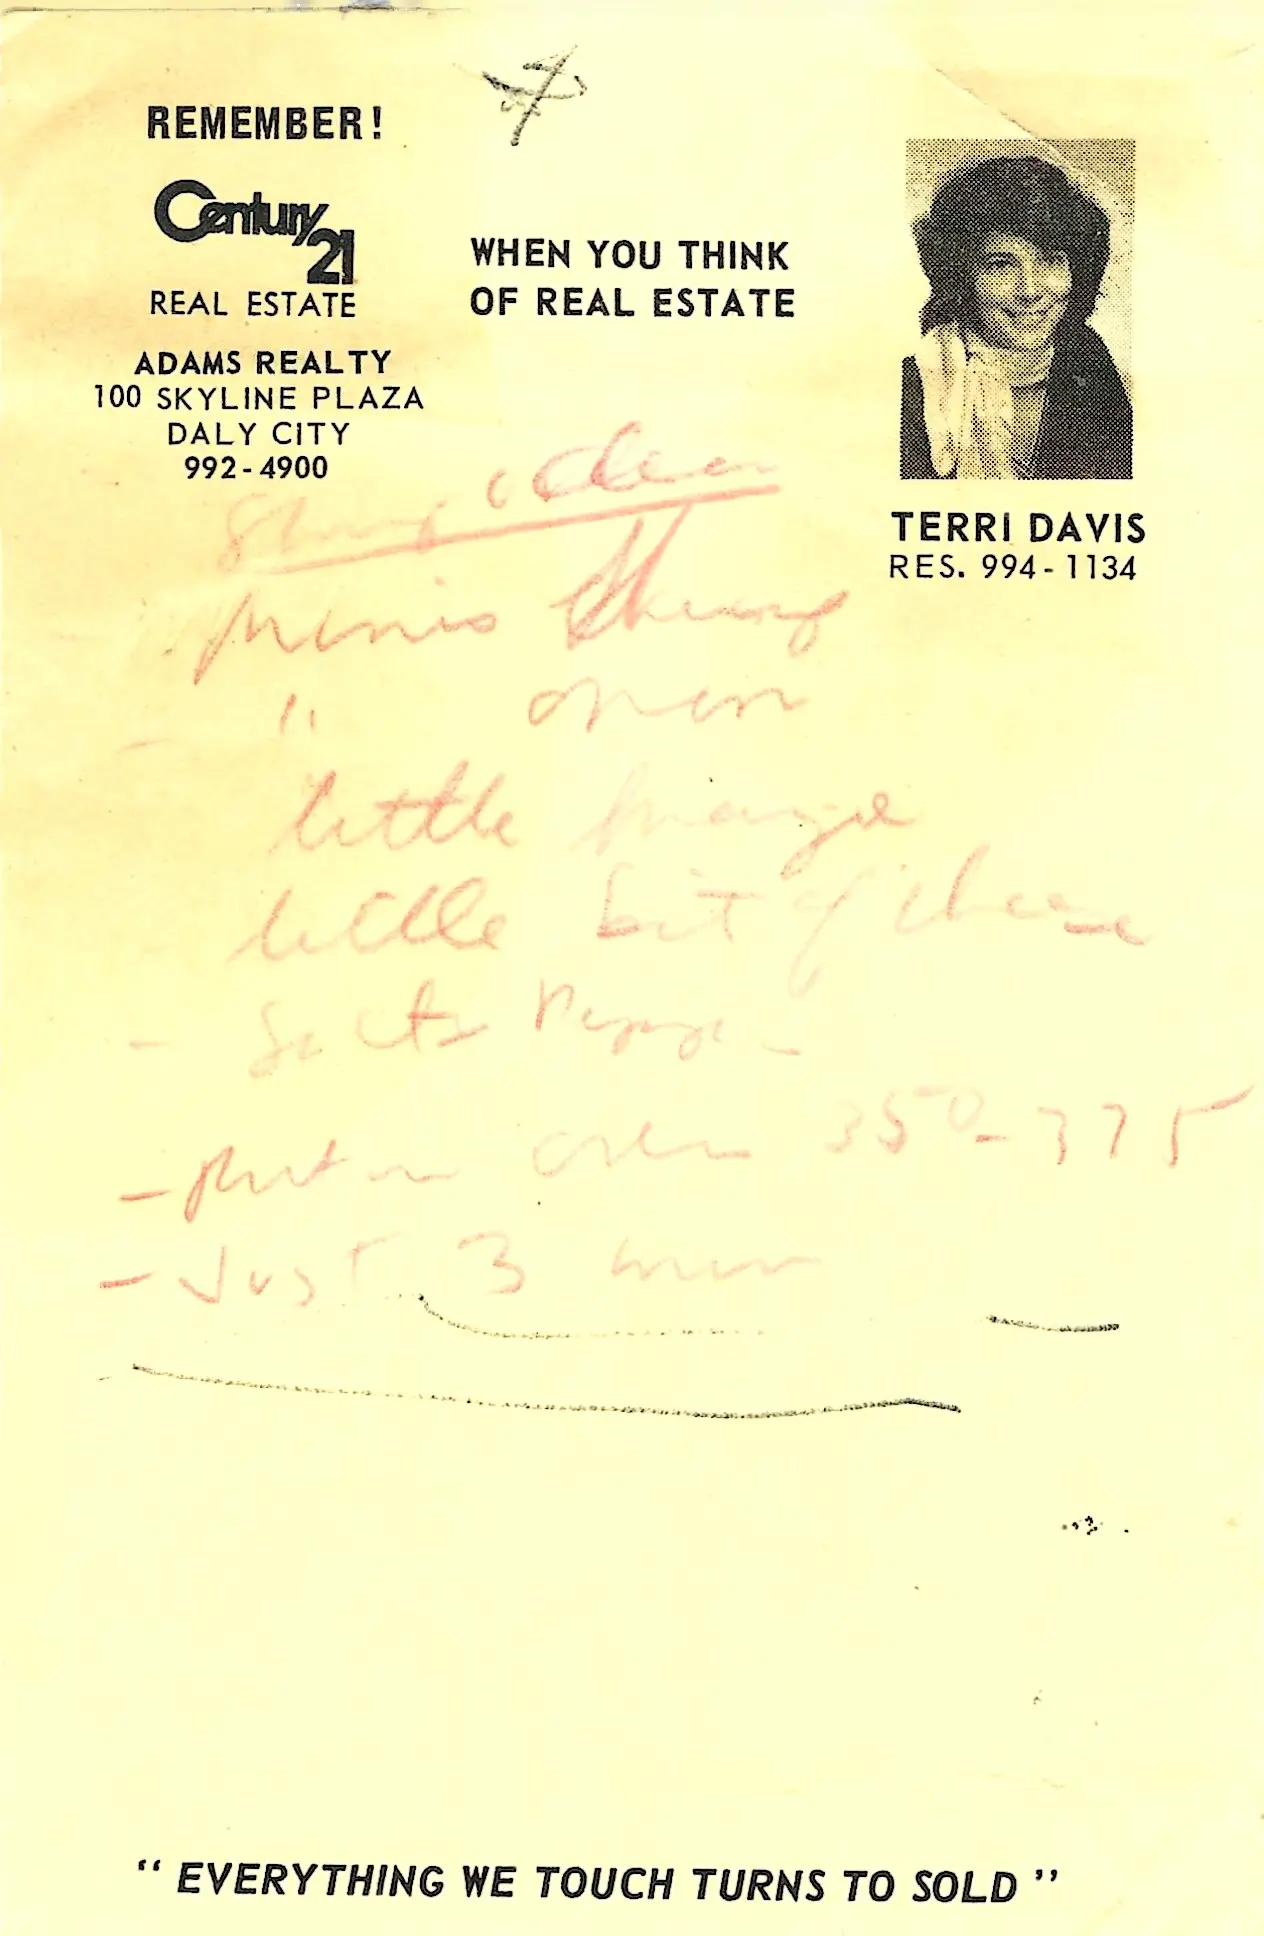 REMEMBER!
Century 21
REAL ESTATE
ADAMS REALTY
100 SKYLINE PLAZA
DALY CITY
992-4900
WHEN YOU THINK
OF REAL ESTATE
TERRI DAVIS
RES. 994-1134
" onion
little
little bit of cheese
- Salt Pepper
- Put in oven 350-375
- Just 3 min
" EVERYTHING WE TOUCH TURNS TO SOLD "